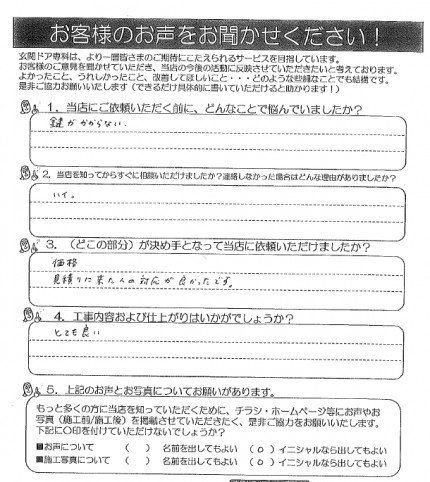 お客様のお声をお聞かせください！
玄関ドア専科は、より一層皆さまのご期待にこたえられるサービスを目指しています。
お客様のご意見を聞かせていただき、当店の今後の活動に反映させていただきたいと考えております。
よかったこと、うれしかったこと、改善してほしいこと・・・どのような些細なことでも結構です。
是非ご協力お願いいたします（できるだけ具体的に書いていただけると助かります！）
1．当店にご依頼いただく前に、どんなことで悩んでいましたか？
鍵がかからない．
2．当店を知ってからすぐに相談いただけましたか？連絡しなかった場合はどんな理由がありましたか？
ハイ。
3．（どこの部分）が決め手となって当店に依頼いただけましたか？
価格
見積りに来た人の対応が良かったです。
4．工事内容および仕上がりはいかがでしょうか？
とても良い
5．上記のお声とお写真についてお願いがあります。
もっと多くの方に当店を知っていただくために、チラシ・ホームページ等にお声やお
写真（施工前/施工後）を掲載させていただきたく、是非ご協力をお願いいたします。
下記に〇印を付けていただけないでしょうか？
■お声について （ ） 名前を出してもよい （○）イニシャルなら出してもよい
■施工写真について （ ） 名前を出してもよい （○）イニシャルなら出してもよい